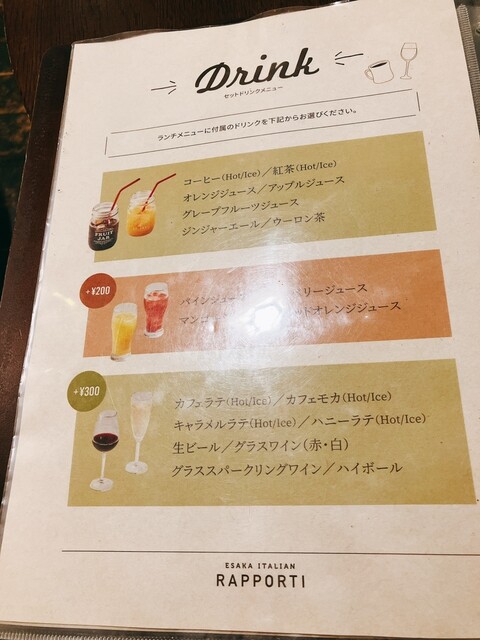 Drink
セットドリンクメニュー
ランチメニューに付属のドリンクを下記からお選びください。
コーヒー(Hot/Ice)／紅茶(Hot/Ice)
オレンジジュース／アップルジュース
グレープフルーツジュース
ジンジャーエール／ウーロン茶
FRUIT JAR
+¥200
パインジュ リージュース
マンゴ オレンジジュース
+¥300
カフェラテ(Hot/Ice)／カフェモカ(Hot/Ice)
キャラメルラテ(Hot/Ice)／ハニーラテ(Hot/Ice)
生ビール／グラスワイン(赤・白)
グラススパークリングワイン／ハイボール
ESAKA ITALIAN
RAPPORTI